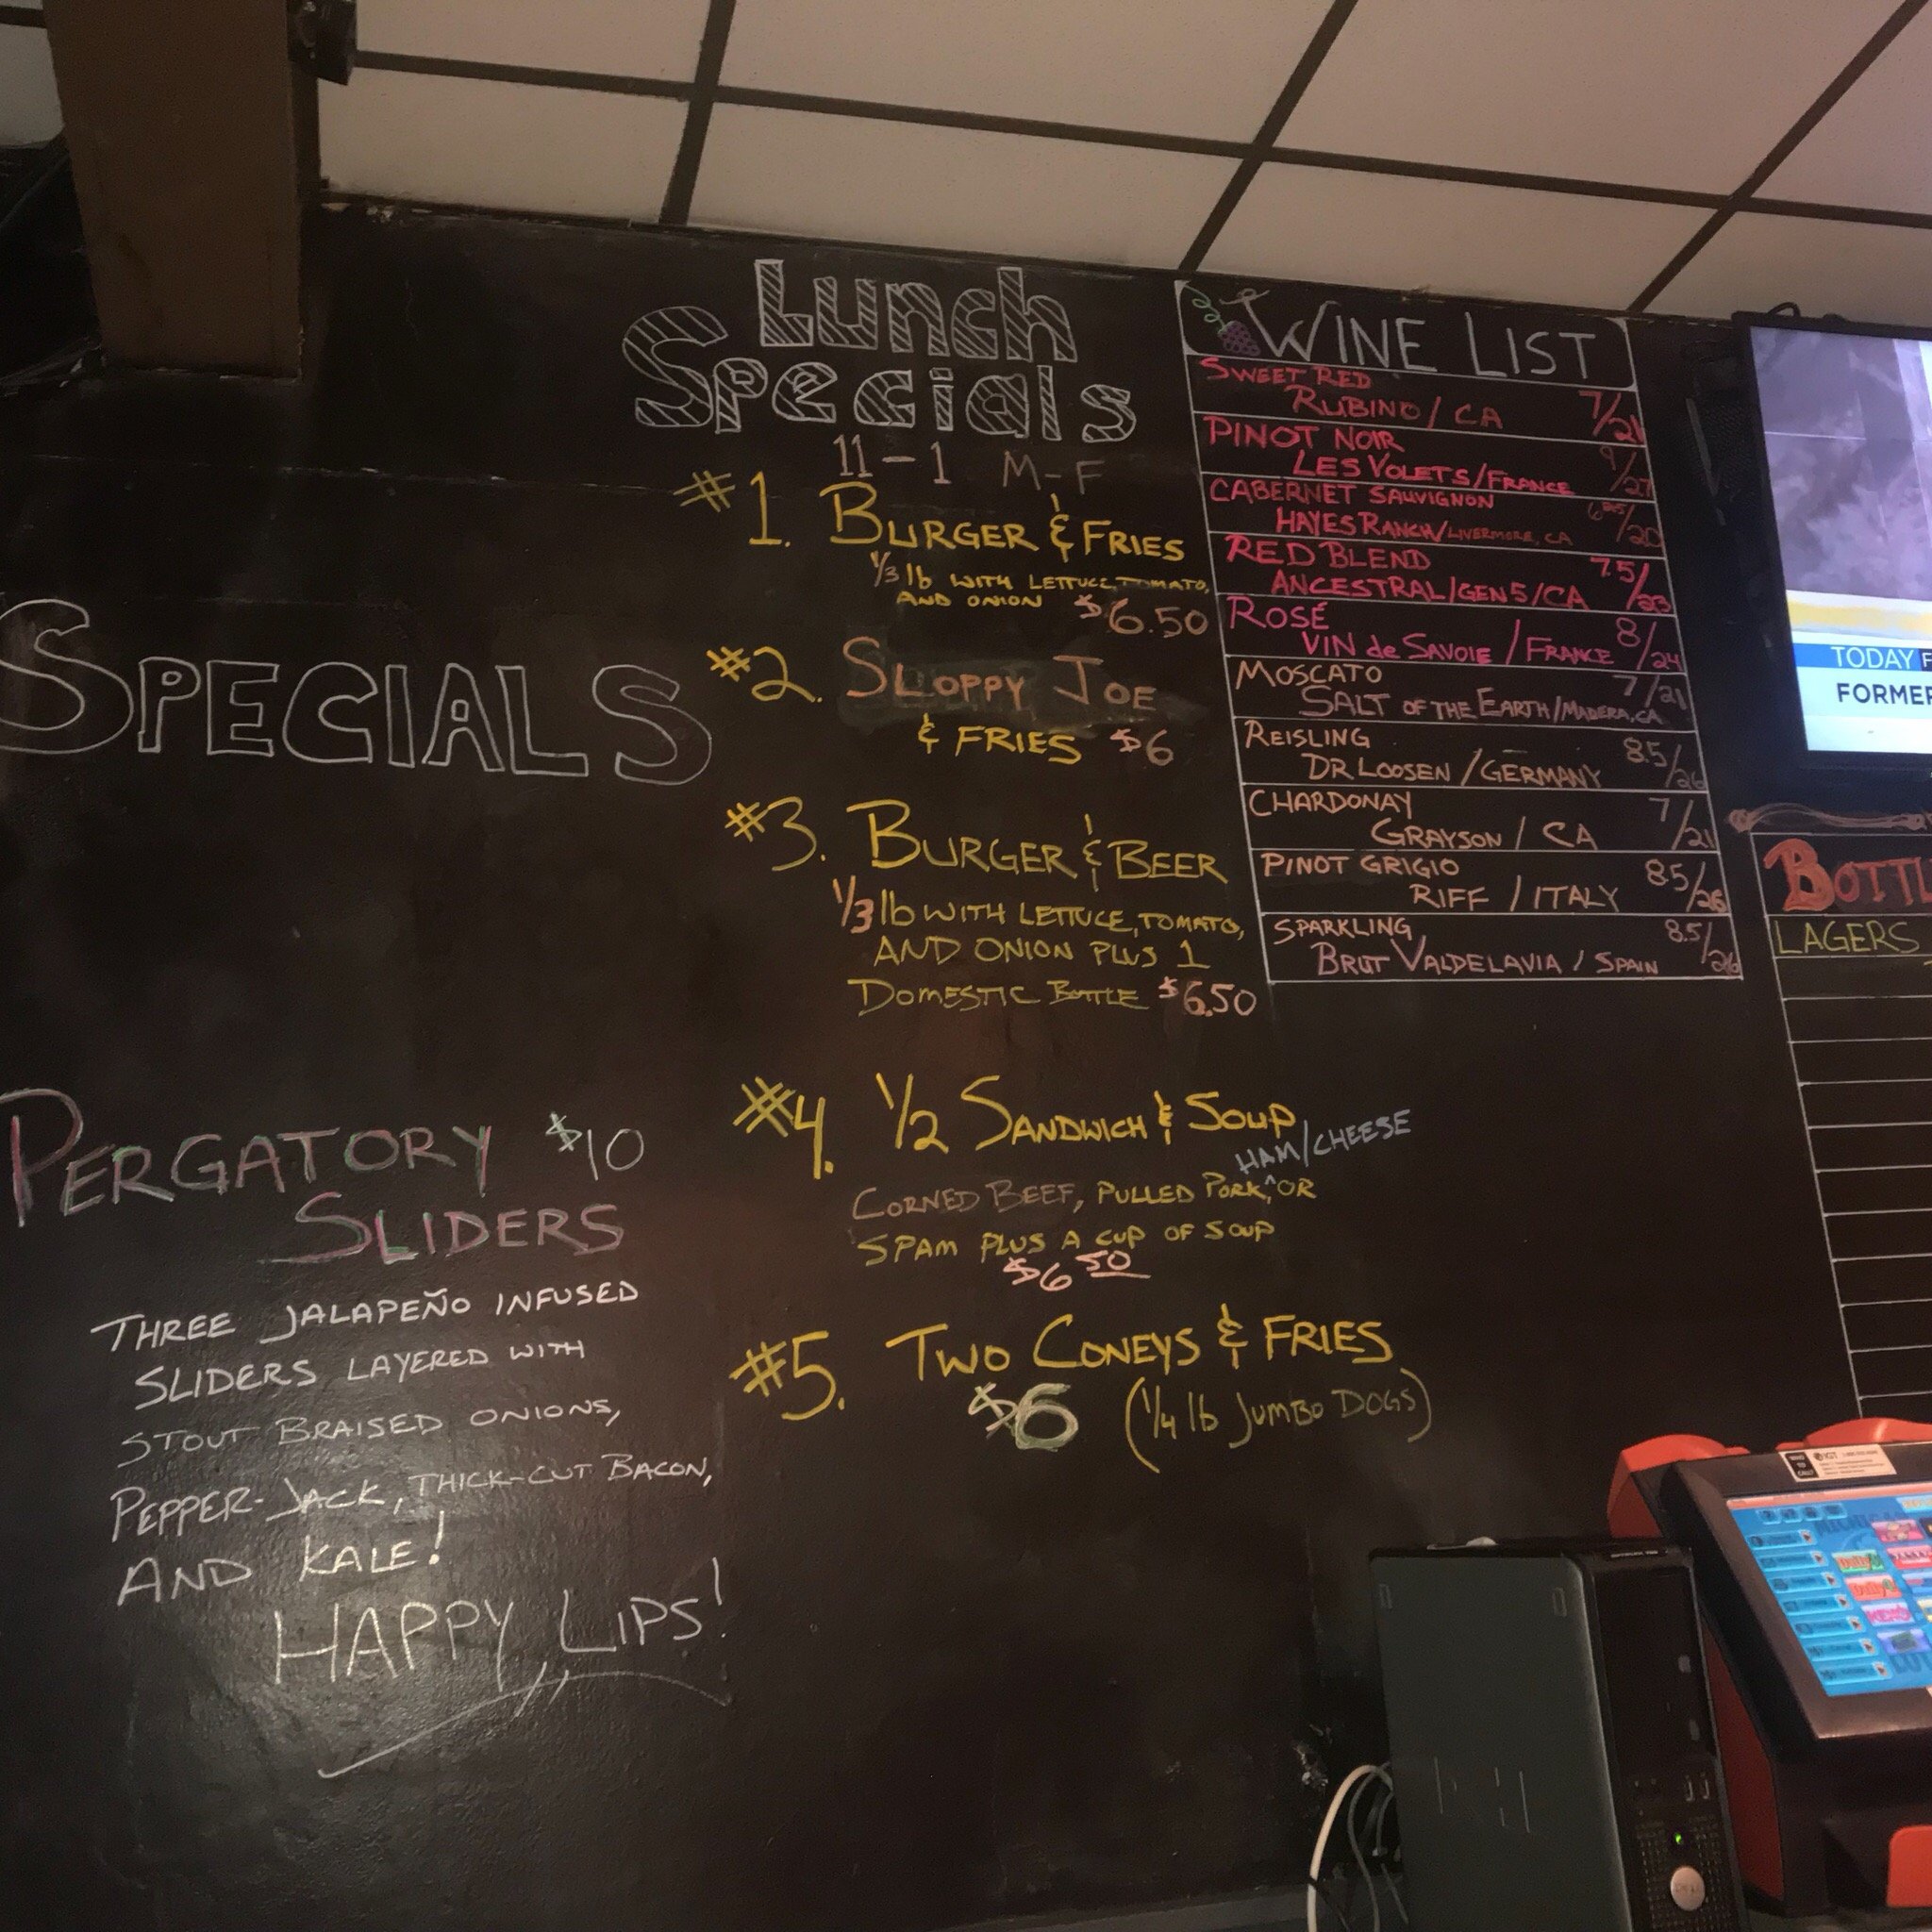 SPECIALS
PERGATORY $10
SLIDERS
THREE JALAPEÑO INFUSED
SLIDERS LAYERED WITH
STOUT BRAISED ONIONS,
PEPPER-JACK, THICK-CUT BACON,
AND KALE!
HAPPY LIPS!
Lunch
Specials
11-1 M-F
#1. BURGER & FRIES
1/3 lb WITH LETTUCE TOMATO,
AND ONION $6.50
#2. SLOPPY JOE
& FRIES $6
#3. BURGER & BEER
1/3 lb WITH LETTUCE, TOMATO,
AND ONION PLUS 1
DOMESTIC BOTTLE $6.50
#4. 1/2 SANDWICH & SOUP
HAM/CHEESE
CORNED BEEF, PULLED PORK, ^ OR
SPAM PLUS A CUP OF SOUP
$6 50
#5. TWO CONEYS & FRIES
$6 (1/4 lb JUMBO DOGS)
WINE LIST
SWEET RED
RUBINO / CA 7/21
PINOT NOIR
LES VOLETS/FRANCE 9/27
CABERNET SAUVIGNON
HAYES RANCH/LIVERMORE, CA /20
RED BLEND
ANCESTRAL/GEN5/CA 7.5/23
ROSÉ
VIN de SAVOIE / FRANCE 8/24
MOSCATO
SALT OF THE EARTH/MADERA, CA 7/21
REISLING
DR LOOSEN / GERMANY 8.5/26
CHARDONAY
GRAYSON / CA 7/21
PINOT GRIGIO
RIFF / ITALY 8.5/26
SPARKLING
BRUT VALDELAVIA / SPAIN 8.5/26
TODAY
FORMER
BOTTL
LAGERS
IGT
DELL